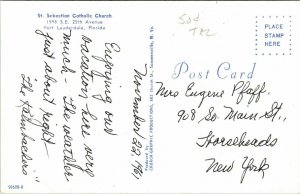 St. Sebastian Catholic Church
1998 S.E. 25th Avenue
Fort Lauderdale, Florida
November 29, '61,
Enjoying our
vacation here very
much - The weather
just about right -
The
50d
TRZ
PLACE
STAMP
HERE
Post Card
Mrs Eugene Pfaff.
908 So. Main St.,
Horseheads
New York
Published by
50628-B